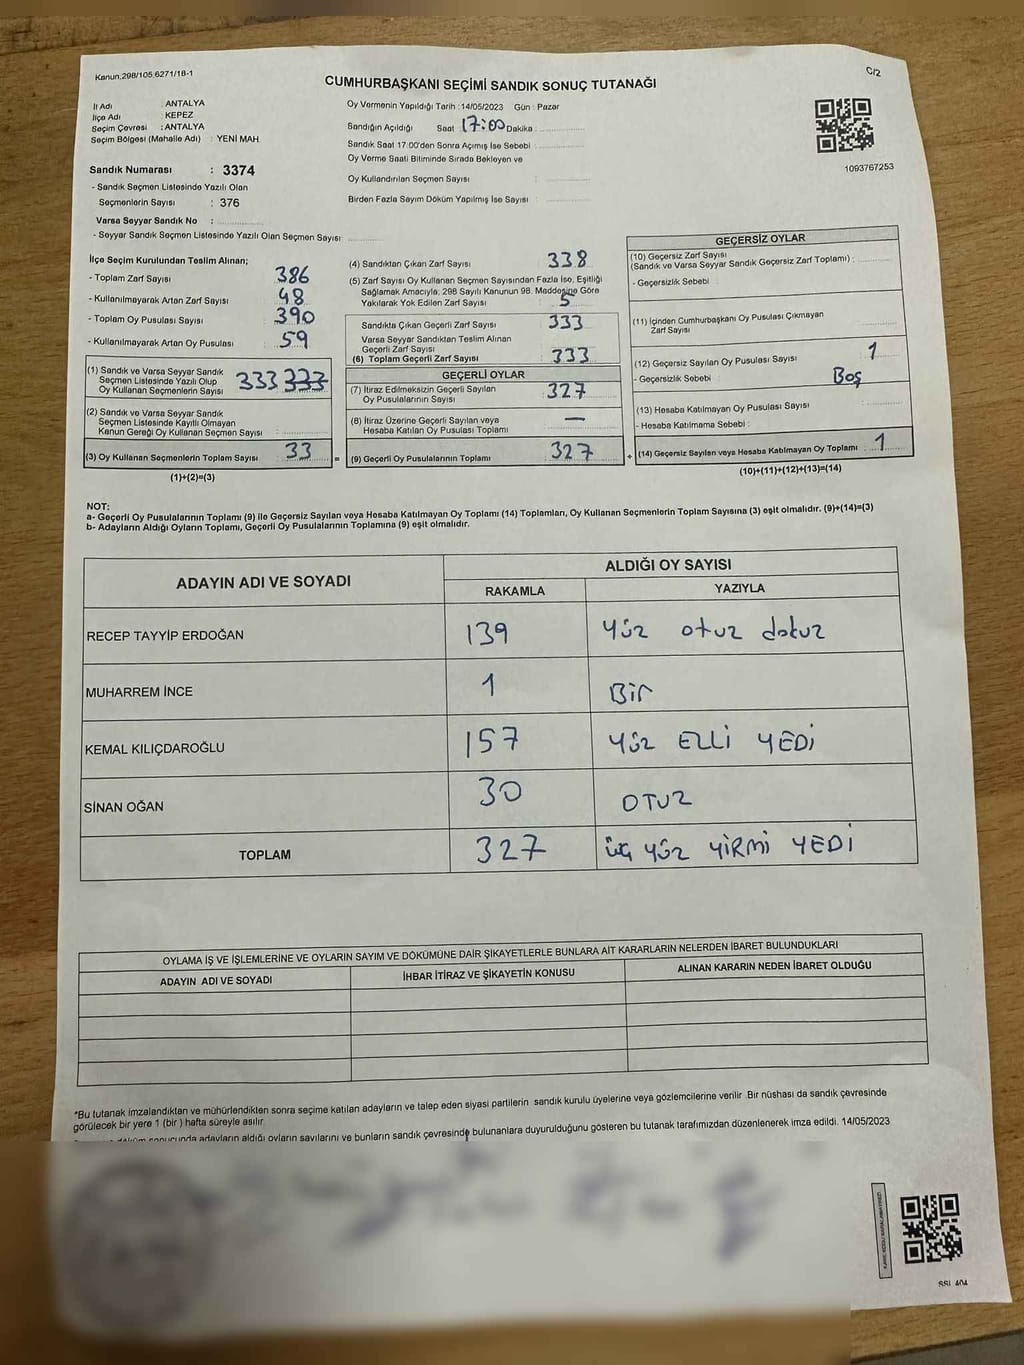 Kanun:298/105 6271/18-1
C/2
CUMHURBAŞKANI SEÇİMİ SANDIK SONUÇ TUTANAĞI
İl Adı : ANTALYA
İlçe Adı : KEPEZ
Seçim Çevresi : ANTALYA
Seçim Bölgesi (Mahalle Adı) : YENİ MAH.
Sandık Numarası : 3374
- Sandık Seçmen Listesinde Yazılı Olan
Seçmenlerin Sayısı : 376
Varsa Seyyar Sandık No :
- Seyyar Sandık Seçmen Listesinde Yazılı Olan Seçmen Sayısı
Oy Vermenin Yapıldığı Tarih : 14/05/2023 Gün : Pazar
Sandığın Açıldığı Saat 17:00 Dakika :
Sandık Saat 17:00'den Sonra Açımış İse Sebebi :
Oy Verme Saati Bitiminde Sırada Bekleyen ve
Oy Kullandırılan Seçmen Sayısı :
Birden Fazla Sayım Döküm Yapılmış İse Sayısı :
1093767253
İlçe Seçim Kurulundan Teslim Alınan;
- Toplam Zarf Sayısı : 386
- Kullanılmayarak Artan Zarf Sayısı : 48
- Toplam Oy Pusulası Sayısı : 390
- Kullanılmayarak Artan Oy Pusulası : 59
(1) Sandık ve Varsa Seyyar Sandık
Seçmen Listesinde Yazılı Olup
Oy Kullanan Seçmenlerin Sayısı : 333 333
(2) Sandık ve Varsa Seyyar Sandık
Seçmen Listesinde Kayıtlı Olmayan
Kanun Gereği Oy Kullanan Seçmen Sayısı :
(3) Oy Kullanan Seçmenlerin Toplam Sayısı : 33
(1)+(2)=(3)
(4) Sandıktan Çıkan Zarf Sayısı : 338
(5) Zarf Sayısı Oy Kullanan Seçmen Sayısından Fazla İse, Eşitliği
Sağlamak Amacıyla, 298 Sayılı Kanunun 98. Maddesine Göre
Yakılarak Yok Edilen Zarf Sayısı : 5
Sandıkta Çıkan Geçerli Zarf Sayısı : 333
Varsa Seyyar Sandıktan Teslim Alınan
Geçerli Zarf Sayısı :
(6) Toplam Geçerli Zarf Sayısı : 333
GEÇERLİ OYLAR
(7) İtiraz Edilmeksizin Geçerli Sayılan
Oy Pusulalarının Sayısı : 327
(8) İtiraz Üzerine Geçerli Sayılan veya
Hesaba Katılan Oy Pusulası Toplamı : —
= (9) Geçerli Oy Pusulalarının Toplamı : 327
GEÇERSİZ OYLAR
(10) Geçersiz Zarf Sayısı
(Sandık ve Varsa Seyyar Sandık Geçersiz Zarf Toplamı) :
- Geçersizlik Sebebi :
(11) İçinden Cumhurbaşkanı Oy Pusulası Çıkmayan
Zarf Sayısı
(12) Geçersiz Sayılan Oy Pusulası Sayısı : 1
- Geçersizlik Sebebi : Boş
(13) Hesaba Katılmayan Oy Pusulası Sayısı :
- Hesaba Katılmama Sebebi :
+ (14) Geçersiz Sayılan veya Hesaba Katılmayan Oy Toplamı : 1
(10)+(11)+(12)+(13)=(14)
NOT:
a- Geçerli Oy Pusulalarının Toplamı (9) ile Geçersiz Sayılan veya Hesaba Katılmayan Oy Toplamı (14) Toplamları, Oy Kullanan Seçmenlerin Toplam Sayısına (3) eşit olmalıdır. (9)+(14)=(3)
b- Adayların Aldığı Oyların Toplamı, Geçerli Oy Pusulalarının Toplamına (9) eşit olmalıdır.
ADAYIN ADI VE SOYADI ALDIĞI OY SAYISI
RAKAMLA YAZIYLA
RECEP TAYYİP ERDOĞAN 139 Yüz otuz dokuz
MUHARREM İNCE 1 Bir
KEMAL KILIÇDAROĞLU 157 YÜZ ELLİ YEDİ
SİNAN OĞAN 30 OTUZ
TOPLAM 327 üç yüz YİRMİ YEDİ
OYLAMA İŞ VE İŞLEMLERİNE VE OYLARIN SAYIM VE DÖKÜMÜNE DAİR ŞİKAYETLERLE BUNLARA AİT KARARLARIN NELERDEN İBARET BULUNDUKLARI
ADAYIN ADI VE SOYADI İHBAR İTİRAZ VE ŞİKAYETİN KONUSU ALINAN KARARIN NEDEN İBARET OLDUĞU
*Bu tutanak imzalandıktan ve mühürlendikten sonra seçime katılan adayların ve talep eden siyasi partilerin sandık kurulu üyelerine veya gözlemcilerine verilir .Bir nüshası da sandık çevresinde
görülecek bir yere 1 (bir ) hafta süreyle asılır
sonucunda adayların aldığı oyların sayılarını ve bunların sandık çevresinde bulunanlara duyurulduğunu gösteren bu tutanak tarafımızdan düzenlenerek imza edildi. 14/05/2023